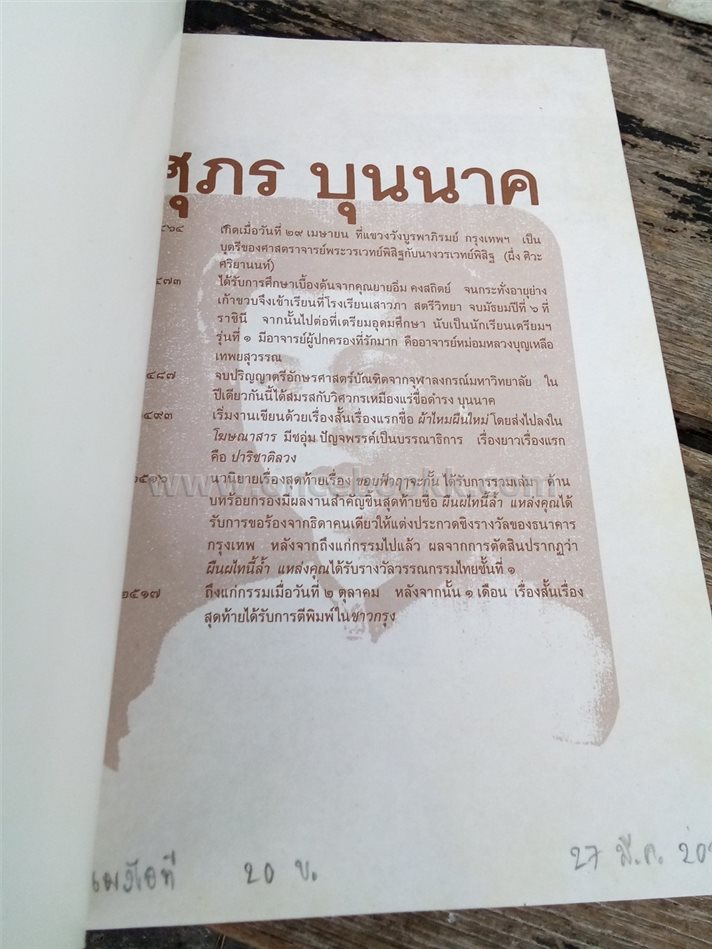 สุภร บุนนาค
๔๖๔ เกิดเมื่อวันที่ ๒๙ เมษายน ที่แขวงวังบูรพาภิรมย์ กรุงเทพฯ เป็น
บุตรีของศาสตราจารย์พระวรเวทย์พิสิฐกับนางวรเวทย์พิสิฐ (ผึ่ง ศิวะ
ศริยานนท์)
๔๗๓ ได้รับการศึกษาเบื้องต้นจากคุณยายอิ่ม คงสถิตย์ จนกระทั่งอายุย่าง
เก้าขวบจึงเข้าเรียนที่โรงเรียนเสาวภา สตรีวิทยา จบมัธยมปีที่ ๖ ที่
ราชินี จากนั้นไปต่อที่เตรียมอุดมศึกษา นับเป็นนักเรียนเตรียมฯ
รุ่นที่ ๑ มีอาจารย์ผู้ปกครองที่รักมาก คืออาจารย์หม่อมหลวงบุญเหลือ
เทพยสุวรรณ
๔๘๗ จบปริญญาตรีอักษรศาสตร์บัณฑิตจากจุฬาลงกรณ์มหาวิทยาลัย ใน
ปีเดียวกันนี้ได้สมรสกับวิศวกรเหมืองแร่ชื่อดำรง บุนนาค
๔๙๓ เริ่มงานเขียนด้วยเรื่องสั้นเรื่องแรกชื่อ ผ้าไหมผืนใหม่ โดยส่งไปลงใน
โฆษณาสาร มีขอุ่ม ปัญจพรรค์เป็นบรรณาธิการ เรื่องยาวเรื่องแรก
คือ ปาริชาติลวง
๒๕๑๖ นวนิยายเรื่องสุดท้ายเรื่อง ขอบฟ้าฤๅจะกั้น ได้รับการรวมเล่ม ด้าน
บทร้อยกรองมีผลงานสำคัญชิ้นสุดท้ายชื่อ ผืนผไทนี้ล้ำ แหล่งคุณได้
รับการขอร้องจากธิดาคนเดียวให้แต่งประกวดชิงรางวัลของธนาคาร
กรุงเทพ หลังจากถึงแก่กรรมไปแล้ว ผลจากการตัดสินปรากฏว่า
ผืนผไทนี้ล้ำ แหล่งคุณได้รับรางวัลวรรณกรรมไทยชั้นที่ ๑
๒๕๑๗ ถึงแก่กรรมเมื่อวันที่ ๒ ตุลาคม หลังจากนั้น ๑ เดือน เรื่องสั้นเรื่อง
สุดท้ายได้รับการตีพิมพ์ในชาวกรุง
20 บ. 27 มี.ค.